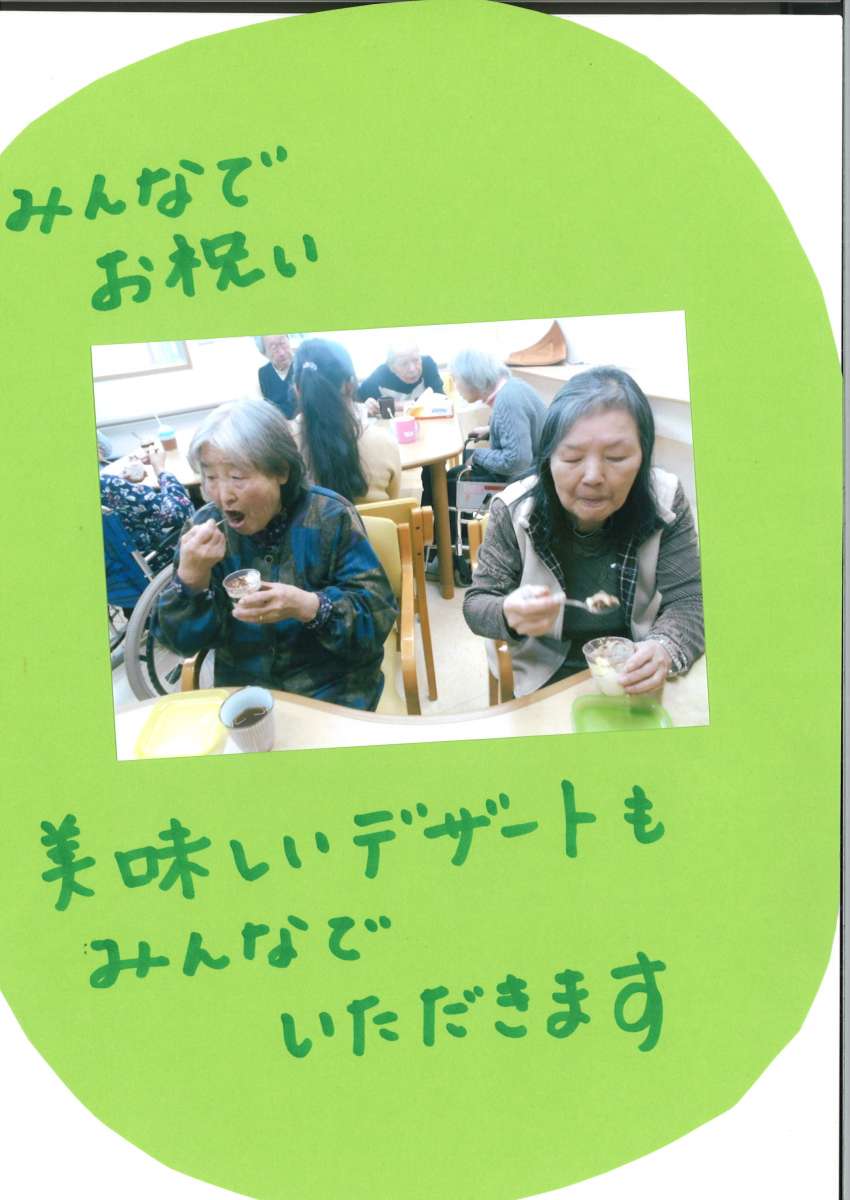 みんなで
お祝い
美味しいデザートも
みんなで
いただきます